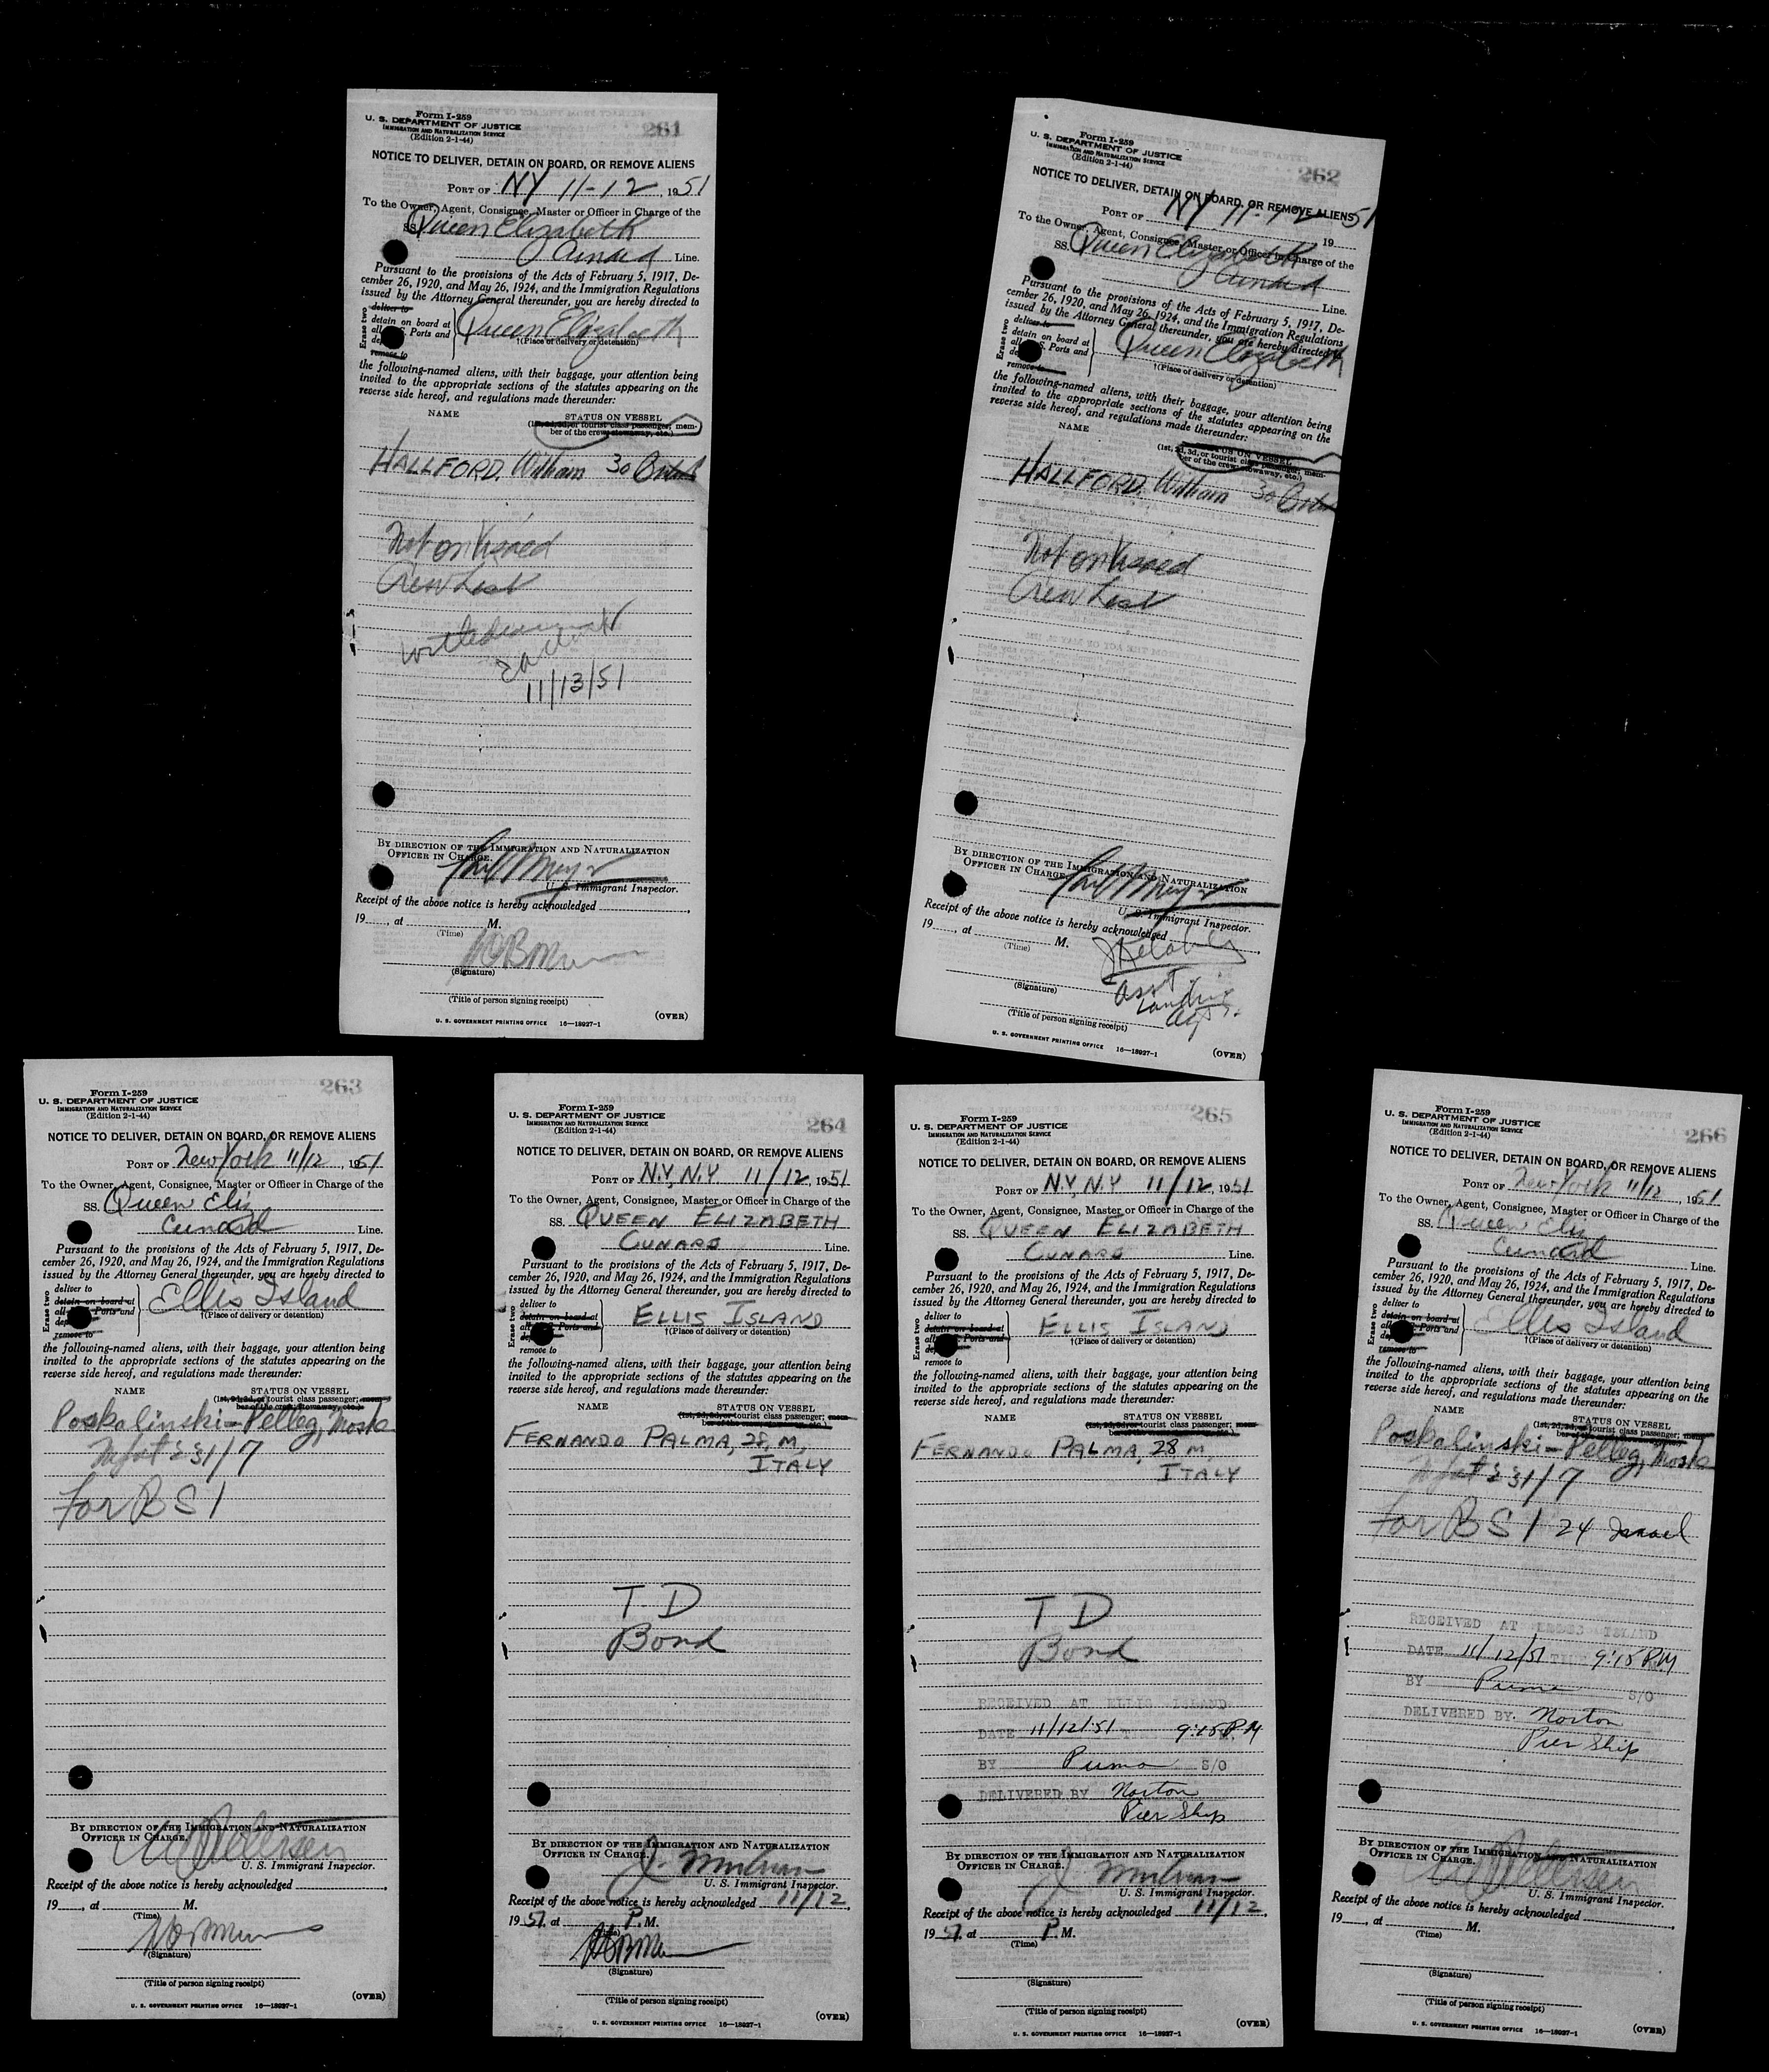 Form I-259
U. S. DEPARTMENT OF JUSTICE
IMMIGRATION AND NATURALIZATION SERVICE
(Edition 2-1-44)
261
NOTICE TO DELIVER, DETAIN ON BOARD, OR REMOVE ALIENS
PORT OF NY 11-12, 1951
To the Owner, Agent, Consignee, Master or Officer in Charge of the
SS. Queen Elizabeth
Cunard Line.
Pursuant to the provisions of the Acts of February 5, 1917, De-
cember 26, 1920, and May 26, 1924, and the Immigration Regulations
issued by the Attorney General thereunder, you are hereby directed to
Erase two
deliver to
detain on board at
all S. Ports and
remove to
Queen Elizabeth
†(Place of delivery or detention)
the following-named aliens, with their baggage, your attention being
invited to the appropriate sections of the statutes appearing on the
reverse side hereof, and regulations made thereunder:
NAME STATUS ON VESSEL
(1st, 2d, 3d, or tourist class passenger; mem-
ber of the crew, stowaway, etc.)
HALLFORD, William 30
Not on Visaed
Crew List
11/13/51
BY DIRECTION OF THE IMMIGRATION AND NATURALIZATION
OFFICER IN CHARGE.
U. S. Immigrant Inspector.
Receipt of the above notice is hereby acknowledged
19 , at M.
(Time)
(Signature)
(Title of person signing receipt)
U. S. GOVERNMENT PRINTING OFFICE 16—18927-1
(OVER)
Form I-259
U. S. DEPARTMENT OF JUSTICE
IMMIGRATION AND NATURALIZATION SERVICE
(Edition 2-1-44)
262
NOTICE TO DELIVER, DETAIN ON BOARD, OR REMOVE ALIENS
PORT OF NY 11-12 19 51
To the Owner, Agent, Consignee, Master or Officer in Charge of the
SS. Queen Elizabeth
Cunard Line.
Pursuant to the provisions of the Acts of February 5, 1917, De-
cember 26, 1920, and May 26, 1924, and the Immigration Regulations
issued by the Attorney General thereunder, you are hereby directed to
Erase two
deliver to
detain on board at
all S. Ports and
remove to
Queen Elizabeth
†(Place of delivery or detention)
the following-named aliens, with their baggage, your attention being
invited to the appropriate sections of the statutes appearing on the
reverse side hereof, and regulations made thereunder:
NAME STATUS ON VESSEL
(1st, 2d, 3d, or tourist class passenger; mem-
ber of the crew, stowaway, etc.)
HALLFORD, William 30
Not on Visaed
Crew List
BY DIRECTION OF THE IMMIGRATION AND NATURALIZATION
OFFICER IN CHARGE.
U. S. Immigrant Inspector.
Receipt of the above notice is hereby acknowledged
19 , at M.
(Time)
(Signature)
Asst
Landing
Agt
(Title of person signing receipt)
U. S. GOVERNMENT PRINTING OFFICE 16—18927-1
(OVER)
Form I-259
U. S. DEPARTMENT OF JUSTICE
IMMIGRATION AND NATURALIZATION SERVICE
(Edition 2-1-44)
263
NOTICE TO DELIVER, DETAIN ON BOARD, OR REMOVE ALIENS
PORT OF New York 11/12, 1951
To the Owner, Agent, Consignee, Master or Officer in Charge of the
SS. Queen Eliz
Cunard Line.
Pursuant to the provisions of the Acts of February 5, 1917, De-
cember 26, 1920, and May 26, 1924, and the Immigration Regulations
issued by the Attorney General thereunder, you are hereby directed to
Erase two
deliver to
detain on board at
all Ports and
remove to
Ellis Island
†(Place of delivery or detention)
the following-named aliens, with their baggage, your attention being
invited to the appropriate sections of the statutes appearing on the
reverse side hereof, and regulations made thereunder:
NAME STATUS ON VESSEL
(1st, 2d, 3d, or tourist class passenger; mem-
ber of the crew, stowaway, etc.)
Poskalinski-Pelleg, Moshe
31/7
For BSI
BY DIRECTION OF THE IMMIGRATION AND NATURALIZATION
OFFICER IN CHARGE.
U. S. Immigrant Inspector.
Receipt of the above notice is hereby acknowledged
19 , at M.
(Time)
(Signature)
(Title of person signing receipt)
U. S. GOVERNMENT PRINTING OFFICE 16—18927-1
(OVER)
Form I-259
U. S. DEPARTMENT OF JUSTICE
IMMIGRATION AND NATURALIZATION SERVICE
(Edition 2-1-44)
264
NOTICE TO DELIVER, DETAIN ON BOARD, OR REMOVE ALIENS
PORT OF N.Y, N.Y. 11/12, 1951
To the Owner, Agent, Consignee, Master or Officer in Charge of the
SS. QUEEN ELIZABETH
CUNARD Line.
Pursuant to the provisions of the Acts of February 5, 1917, De-
cember 26, 1920, and May 26, 1924, and the Immigration Regulations
issued by the Attorney General thereunder, you are hereby directed to
Erase two
deliver to
detain on board at
all S. Ports and
remove to
ELLIS ISLAND
†(Place of delivery or detention)
the following-named aliens, with their baggage, your attention being
invited to the appropriate sections of the statutes appearing on the
reverse side hereof, and regulations made thereunder:
NAME STATUS ON VESSEL
(1st, 2d, 3d, or tourist class passenger; mem-
ber of the crew, stowaway, etc.)
FERNANDO PALMA, 28, M,
ITALY
TD
Bond
BY DIRECTION OF THE IMMIGRATION AND NATURALIZATION
OFFICER IN CHARGE.
U. S. Immigrant Inspector.
Receipt of the above notice is hereby acknowledged 11/12,
1951, at P. M.
(Time)
(Signature)
(Title of person signing receipt)
U. S. GOVERNMENT PRINTING OFFICE 16—18927-1
(OVER)
Form I-259
U. S. DEPARTMENT OF JUSTICE
IMMIGRATION AND NATURALIZATION SERVICE
(Edition 2-1-44)
265
NOTICE TO DELIVER, DETAIN ON BOARD, OR REMOVE ALIENS
PORT OF N.Y, N.Y 11/12, 1951
To the Owner, Agent, Consignee, Master or Officer in Charge of the
SS. QUEEN ELIZABETH
CUNARD Line.
Pursuant to the provisions of the Acts of February 5, 1917, De-
cember 26, 1920, and May 26, 1924, and the Immigration Regulations
issued by the Attorney General thereunder, you are hereby directed to
Erase two
deliver to
detain on board at
all S. Ports and
remove to
ELLIS ISLAND
†(Place of delivery or detention)
the following-named aliens, with their baggage, your attention being
invited to the appropriate sections of the statutes appearing on the
reverse side hereof, and regulations made thereunder:
NAME STATUS ON VESSEL
(1st, 2d, 3d, or tourist class passenger; mem-
ber of the crew, stowaway, etc.)
FERNANDO PALMA, 28 M,
ITALY
TD
Bond
RECEIVED AT ELLIS ISLAND
DATE 11/12/51 9:15 P.M
BY Puma S/O
DELIVERED BY Norton
Pier Ship
BY DIRECTION OF THE IMMIGRATION AND NATURALIZATION
OFFICER IN CHARGE.
U. S. Immigrant Inspector.
Receipt of the above notice is hereby acknowledged 11/12,
1951, at P. M.
(Time)
(Signature)
(Title of person signing receipt)
U. S. GOVERNMENT PRINTING OFFICE 16—18927-1
(OVER)
Form I-259
U. S. DEPARTMENT OF JUSTICE
IMMIGRATION AND NATURALIZATION SERVICE
(Edition 2-1-44)
266
NOTICE TO DELIVER, DETAIN ON BOARD, OR REMOVE ALIENS
PORT OF New York 11/12, 1951
To the Owner, Agent, Consignee, Master or Officer in Charge of the
SS. Queen Eliz
Cunard Line.
Pursuant to the provisions of the Acts of February 5, 1917, De-
cember 26, 1920, and May 26, 1924, and the Immigration Regulations
issued by the Attorney General thereunder, you are hereby directed to
Erase two
deliver to
detain on board at
all S. Ports and
remove to
Ellis Island
†(Place of delivery or detention)
the following-named aliens, with their baggage, your attention being
invited to the appropriate sections of the statutes appearing on the
reverse side hereof, and regulations made thereunder:
NAME STATUS ON VESSEL
(1st, 2d, 3d, or tourist class passenger; mem-
ber of the crew, stowaway, etc.)
Poskalinski-Pelleg, Moshe
31/7
For BSI 24 Israel
RECEIVED AT ELLIS ISLAND
DATE 11/12/51 9:15 P.M
BY Puma S/O
DELIVERED BY Norton
Pier Ship
BY DIRECTION OF THE IMMIGRATION AND NATURALIZATION
OFFICER IN CHARGE.
U. S. Immigrant Inspector.
Receipt of the above notice is hereby acknowledged
19 , at M.
(Time)
(Signature)
(Title of person signing receipt)
U. S. GOVERNMENT PRINTING OFFICE 16—18927-1
(OVER)